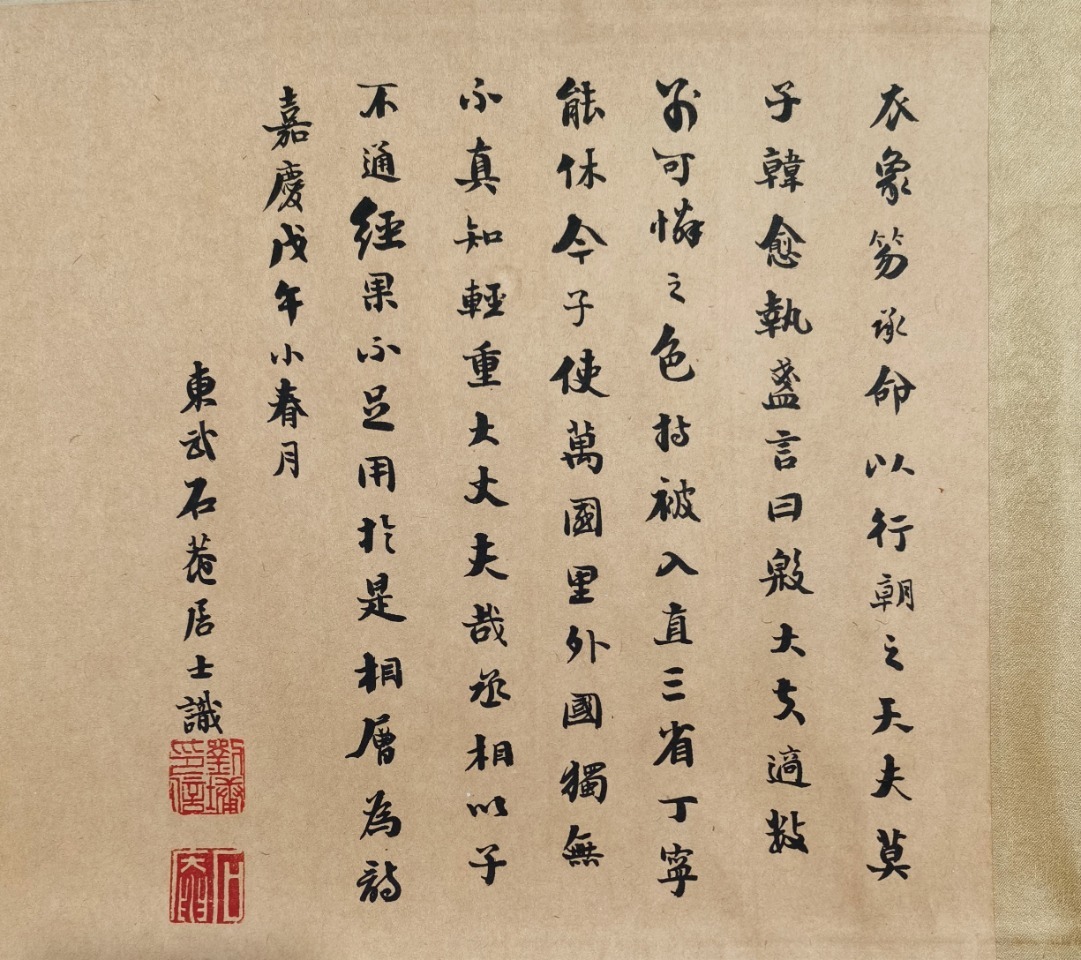 衣象笏承命以行朝之天夫莫
子韓愈執盞言曰殷大夫適數
別可憐之色持被入直三省丁寧
能休今子使萬國里外國獨無
不真知輕重大丈夫哉丞相以子
不通經果不足用於是相層為詩
嘉慶戊午小春月
東武石菴居士識
劉墉印信
石菴